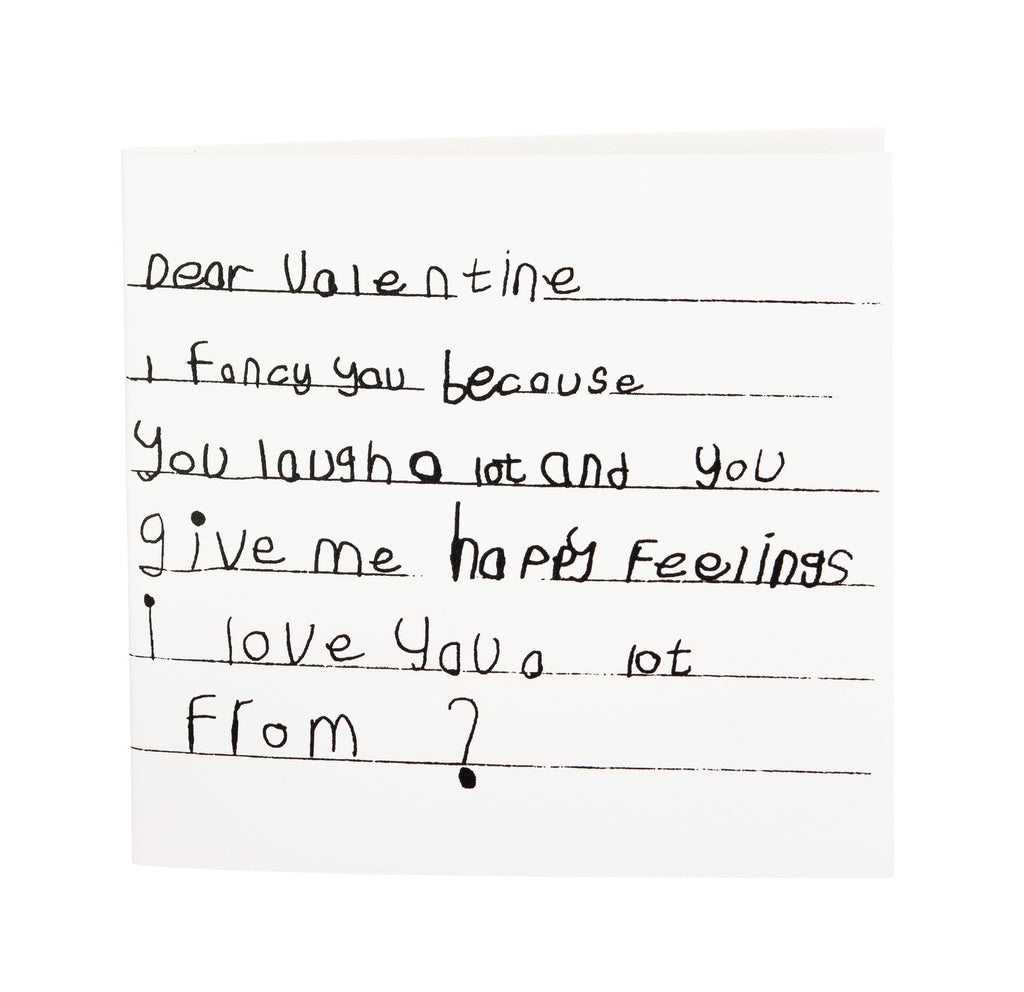 Dear Valentine
i fancy you because
you laugh a lot and you
give me happy Feelings
i love you a lot
From ?